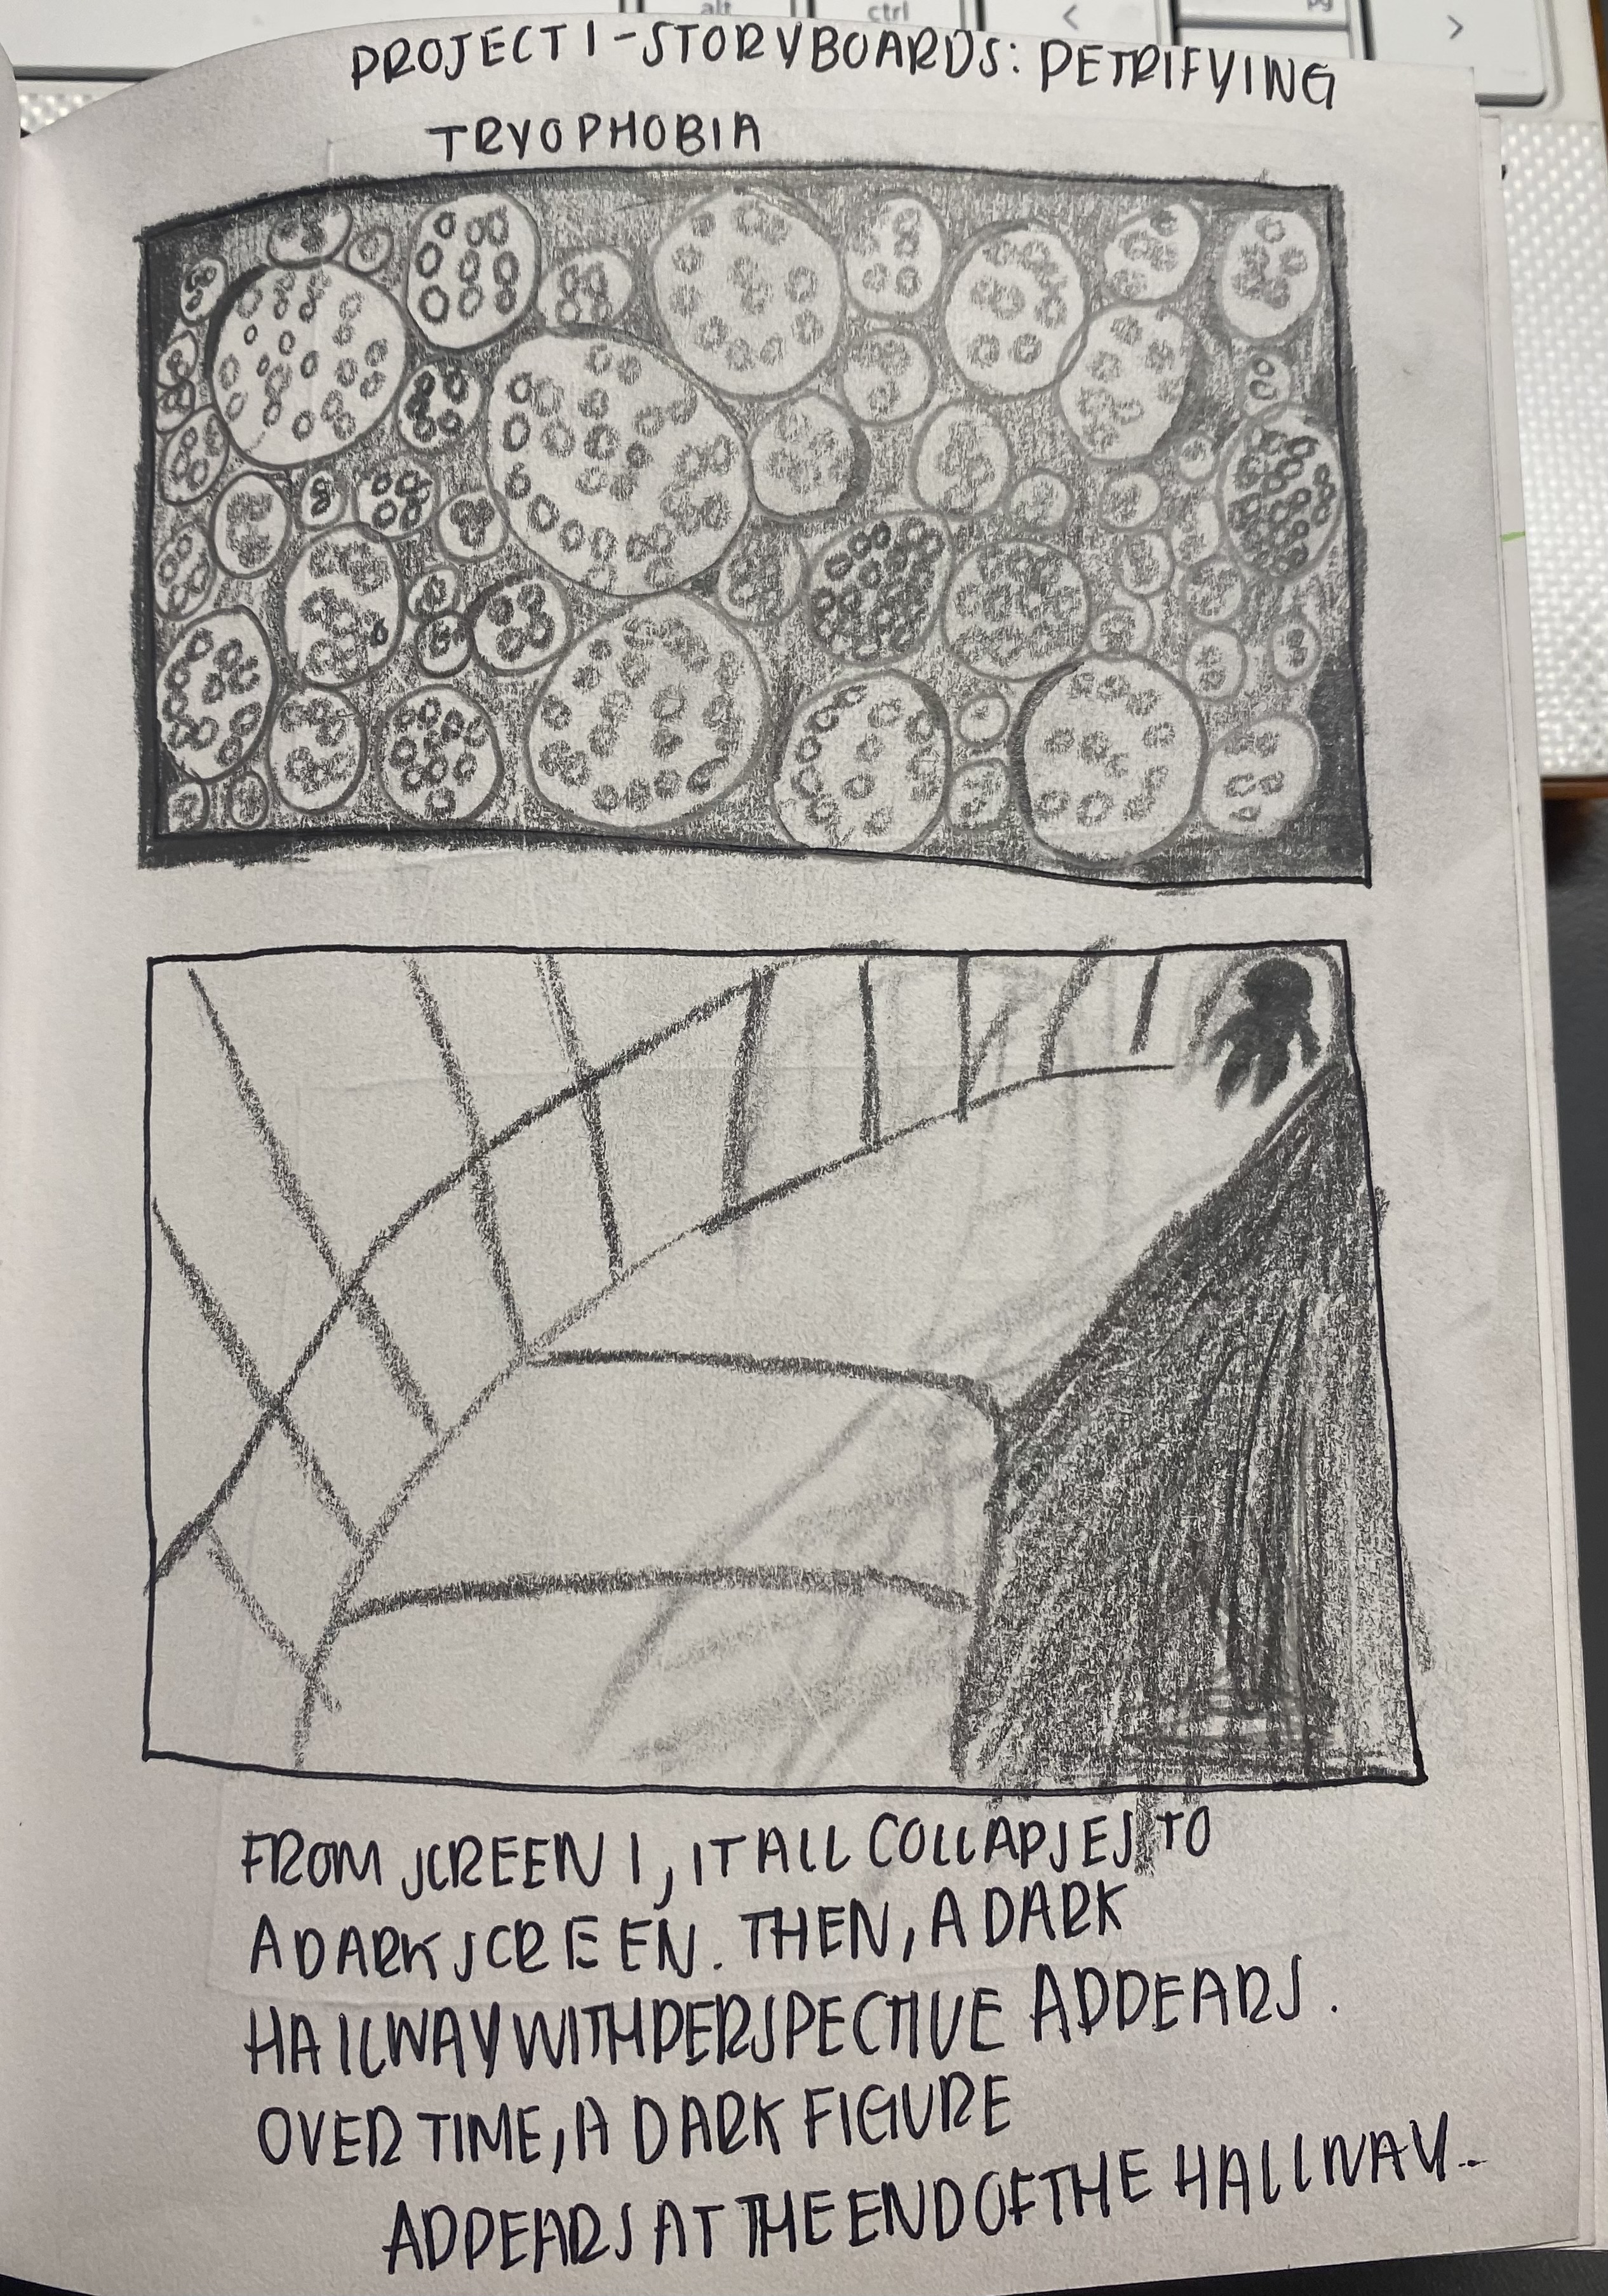 alt
ctrl
<
pg
>
PROJECT 1 - STORYBOARDS: PETRIFYING
TRYOPHOBIA
FROM SCREEN 1, IT ALL COLLAPSES TO
A DARK SCREEN. THEN, A DARK
HALLWAY WITH PERSPECTIVE APPEARS.
OVER TIME, A DARK FIGURE
APPEARS AT THE END OF THE HALLWAY..